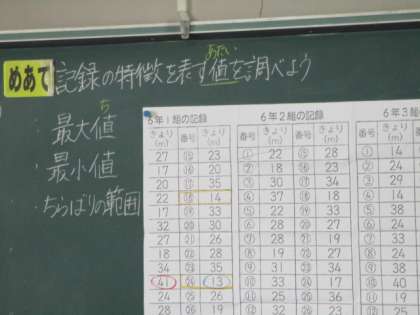 めあて 記録の特徴を表す値を調べよう
あたい
ち
・最大値
・最小値
・ちらばりの範囲
6年1組の記録 6年2組の記録 6年3
きょり(m) 番号 きょり(m) 番号 きょり(m) 番号 きょり(m) 番号
27 ⑮ 23 ① 22 ⑮ 28 ① 14
17 ⑯ 20 ② 18 ⑯ 23 ② 24
20 ⑰ 35 ③ 30 ⑰ 34 ③ 29
22 ⑱ 14 ④ 37 ⑱ 18 ④ 14
17 ⑲ 33 ⑤ 22 ⑲ 33 ⑤ 38
32 ⑳ 30 ⑥ 28 ⑳ 27 ⑥ 24
27 ㉑ 26 ⑦ 28 ㉑ 19 ⑦ 33
18 ㉒ 28 ⑧ 19 ㉒ 27 ⑧ 19
34 ㉓ 35 ⑨ 31 ㉓ 34 ⑨ 38
41 ㉔ 13 ⑩ 33 ㉔ 17 ⑩ 40
24 ㉕ 26 ⑪ 25 ㉕ 36 ⑪ 24
28 ㉖ 19 ⑫ 33 ㉖ 19 ⑫ 14